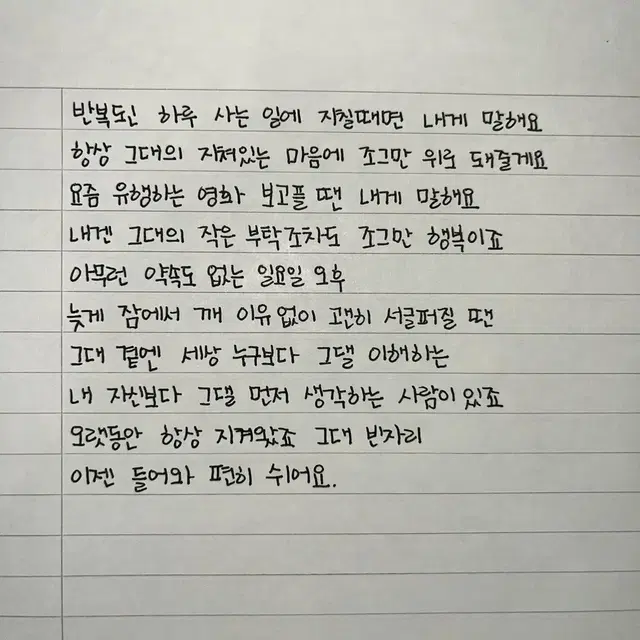 반복되는 하루 사는 일에 지칠때면 내게 말해요
항상 그대의 지쳐있는 마음에 조그만 위로 돼줄게요
요즘 유행하는 영화 보고플 땐 내게 말해요
내겐 그대의 작은 부탁조차도 조그만 행복이죠
아무런 약속도 없는 일요일 오후
늦게 잠에서 깨 이유없이 괜히 서글퍼질 땐
그대 곁엔 세상 누구보다 그댈 이해하는
내 자신보다 그댈 먼저 생각하는 사람이 있죠
오랫동안 항상 지켜왔죠 그대 빈자리
이젠 들어와 편히 쉬어요.